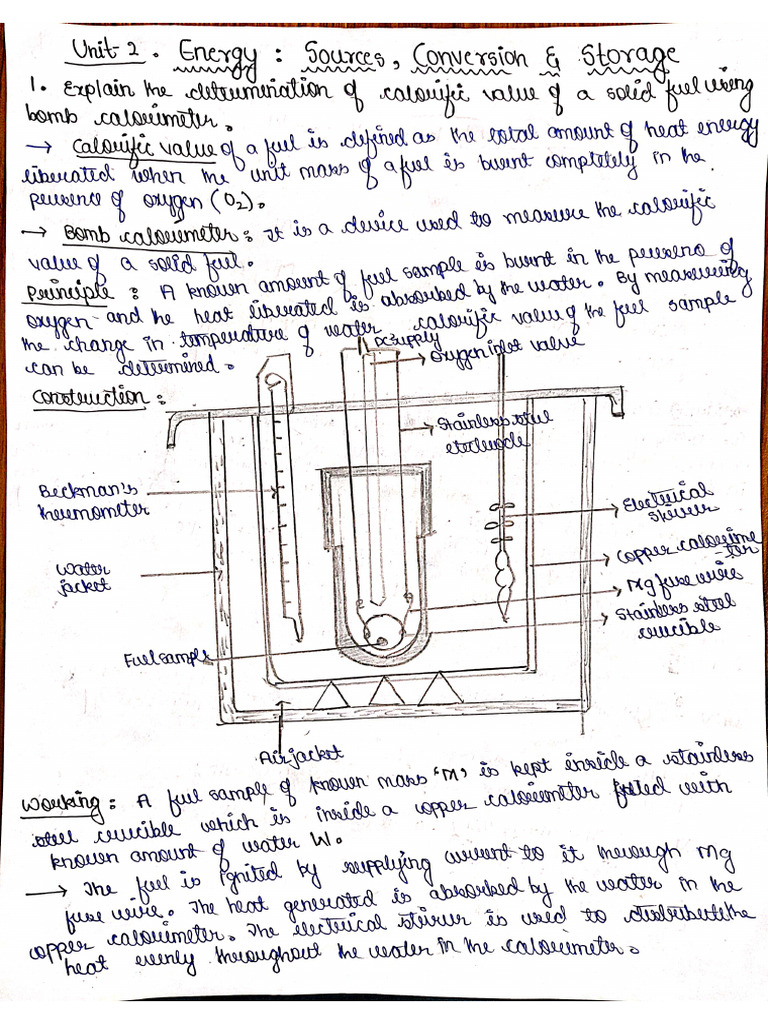 Unit-2. Energy: Sources, Conversion & Storage
1. Explain the determination of calorific value of a solid fuel using
bomb calorimeter.
→ Calorific value of a fuel is defined as the total amount of heat energy
liberated when the unit mass of a fuel is burnt completely in the
presence of oxygen (O2).
→ Bomb calorimeter: It is a device used to measure the calorific
value of a solid fuel.
Principle: A known amount of fuel sample is burnt in the presence of
oxygen and the heat liberated is absorbed by the water. By measuring
the change in temperature of water calorific value of the fuel sample
can be determined.
Construction:
DC supply
Oxygen inlet valve
Stainless steel
electrode
Beckman's
thermometer
Electrical
stirrer
Copper calorime
-ter
Water
jacket
Mg fuse wire
Stainless steel
crucible
Fuel sample
Air jacket
Working: A fuel sample of known mass 'M' is kept inside a stainless
steel crucible which is inside a copper calorimeter filled with
known amount of water W.
→ The fuel is ignited by supplying current to it through Mg
fuse wire. The heat generated is absorbed by the water in the
copper calorimeter. The electrical stirrer is used to distribute the
heat evenly throughout the water in the calorimeter.